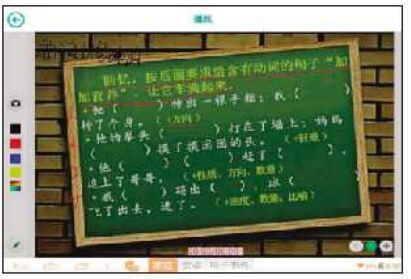 播放
回忆，按后面要求给含有动词的句子“加
加营养”，让它丰满起来。
·他（ ）伸出一根手指；我（ ）
转了个身。（+方向）
·他的拳头（ ）打在了墙上；妈妈
（ ）摸了摸圆圆的长。（+轻重）
·他（ ）（ ）赶了（ ），
追上了哥哥。（+性质、方向、数量）
·我（ ）踢出（ ），球（ ）
飞了出去，进了。（+速度、数量、比喻）